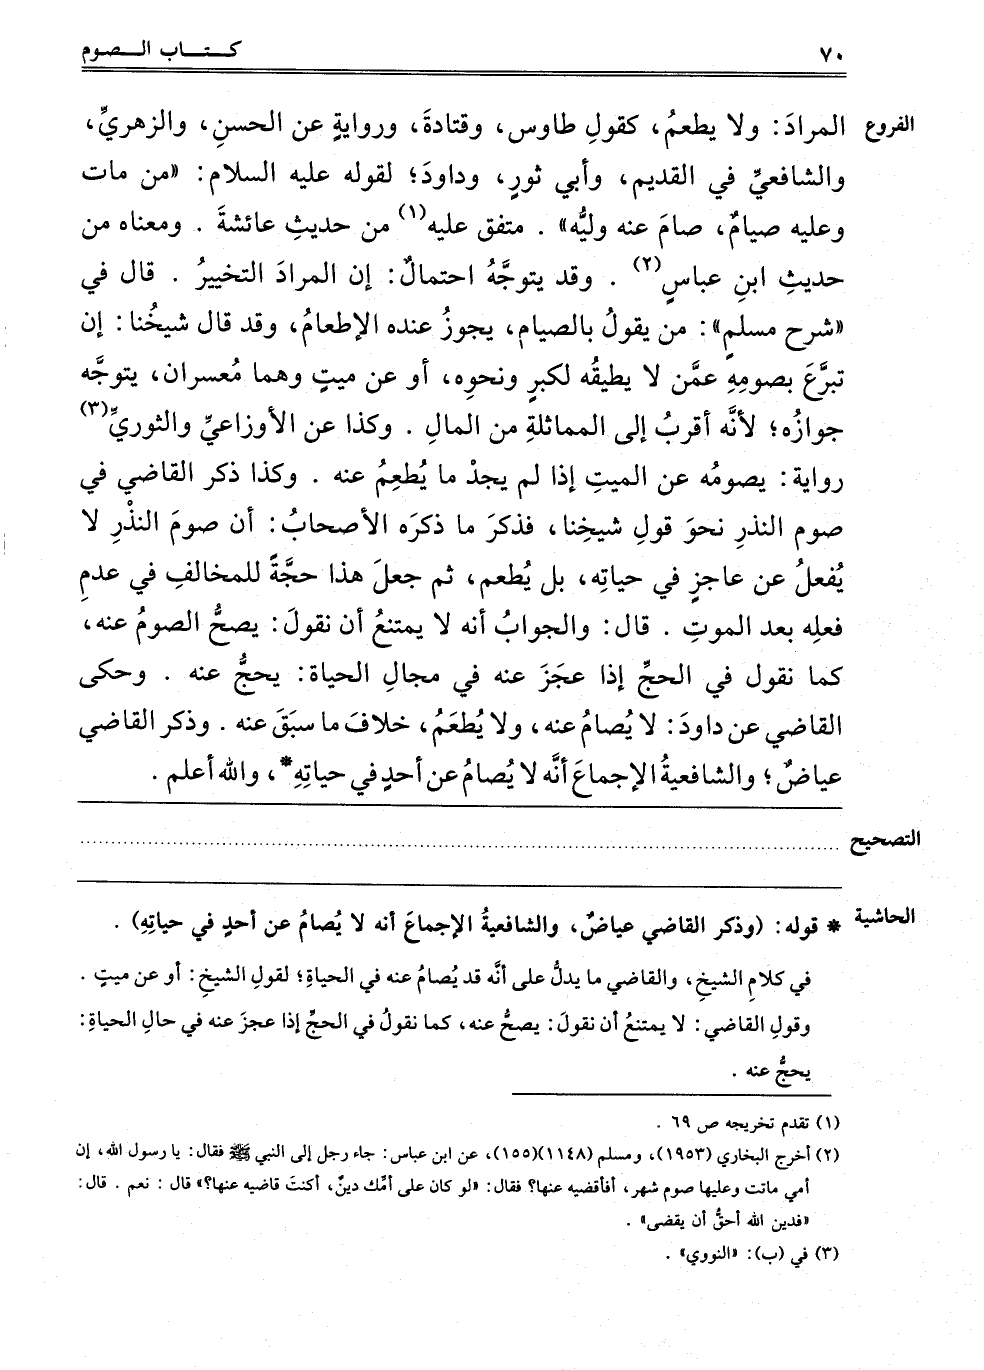 ٧٠ كـتـاب الـصوم
الفروع المرادَ: ولا يطعمُ، كقولِ طاوس، وقتادةَ، وروايةٍ عن الحسنِ، والزهريِّ،
والشافعيِّ في القديم، وأبي ثورٍ، وداودَ؛ لقوله عليه السلام: «من مات
وعليه صيامٌ، صامَ عنه وليُّه» . متفق عليه(١) من حديثِ عائشةَ . ومعناه من
حديثِ ابنِ عباسٍ(٢) . وقد يتوجَّهُ احتمالٌ: إن المرادَ التخييرُ . قال في
«شرح مسلمٍ»: من يقولُ بالصيام، يجوزُ عنده الإطعامُ، وقد قال شيخُنا: إن
تبرَّعَ بصومِهِ عمَّن لا يطيقُه لكبرٍ ونحوِه، أو عن ميتٍ وهما مُعسران، يتوجَّه
جوازُه؛ لأنَّه أقربُ إلى المماثلةِ من المالِ . وكذا عن الأوزاعيِّ والثوريِّ(٣)
رواية: يصومُه عن الميتِ إذا لم يجدْ ما يُطعِمُ عنه . وكذا ذكر القاضي في
صوم النذرِ نحوَ قولِ شيخِنا، فذكرَ ما ذكرَه الأصحابُ: أن صومَ النذْرِ لا
يُفعلُ عن عاجزٍ في حياتِه، بل يُطعم، ثم جعلَ هذا حجَّةً للمخالفِ في عدمِ
فعلِه بعد الموتِ . قال: والجوابُ أنه لا يمتنعُ أن نقولَ: يصحُّ الصومُ عنه،
كما نقول في الحجِّ إذا عجَزَ عنه في مجالِ الحياة: يحجُّ عنه . وحكى
القاضي عن داودَ: لا يُصامُ عنه، ولا يُطعَمُ، خلافَ ما سبَقَ عنه . وذكر القاضي
عياضٌ؛ والشافعيةُ الإجماعَ أنَّه لا يُصامُ عن أحدٍ في حياتِهِ*، والله أعلم .
التصحيح ................................................
الحاشية * قوله: (وذكر القاضي عياضٌ، والشافعيةُ الإجماعَ أنه لا يُصامُ عن أحدٍ في حياتِهِ) .
في كلامِ الشيخِ، والقاضي ما يدلُّ على أنَّه قد يُصامُ عنه في الحياةِ؛ لقولِ الشيخِ: أو عن ميتٍ .
وقولِ القاضي: لا يمتنعُ أن نقولَ: يصحُّ عنه، كما نقولُ في الحجِّ إذا عجزَ عنه في حالِ الحياةِ:
يحجُّ عنه .
(١) تقدم تخريجه ص ٦٩ .
(٢) أخرج البخاري (١٩٥٣)، ومسلم (١١٤٨)(١٥٥)، عن ابن عباس: جاء رجل إلى النبي ﷺ فقال: يا رسول الله، إن
أمي ماتت وعليها صوم شهر، أفأقضيه عنها؟ فقال: «لو كان على أمِّك دينٌ، أكنتَ قاضيه عنها؟» قال: نعم . قال:
«فدين الله أحقُّ أن يقضى» .
(٣) في (ب): «النووي» .